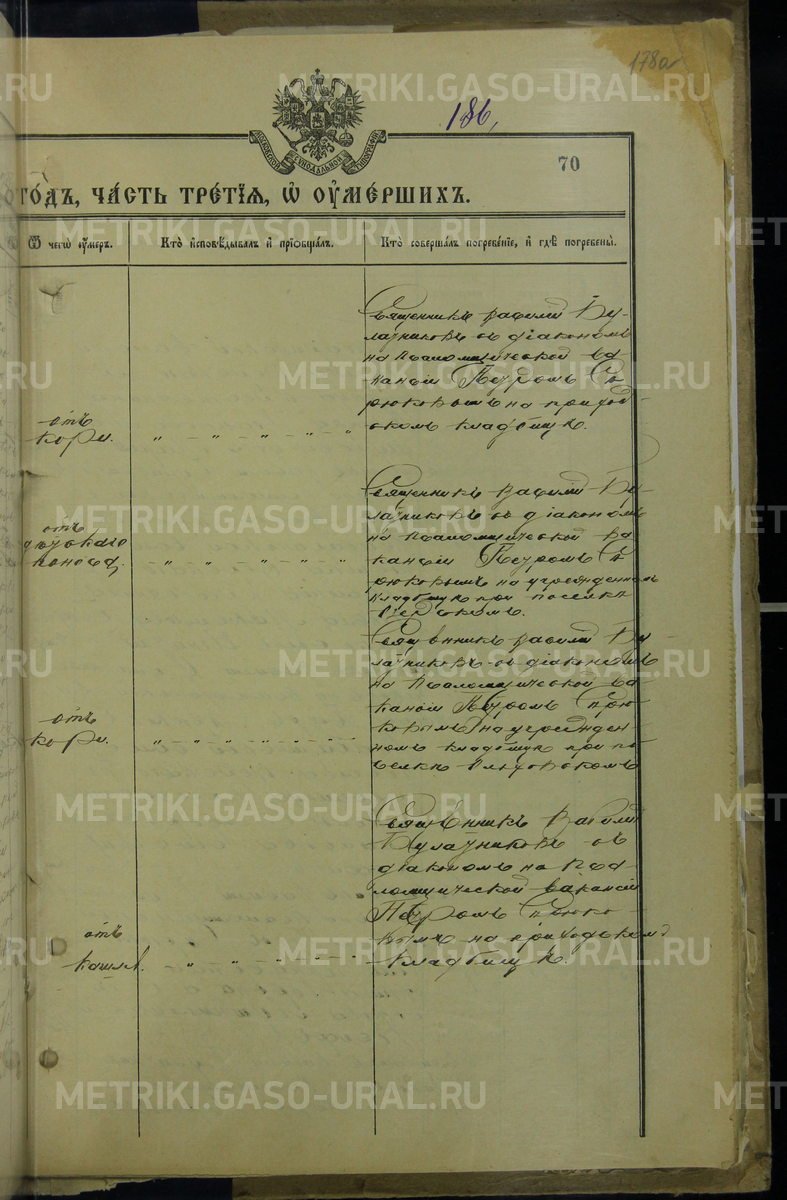 178а
186,
МОСКОВСКОЙ СѴНОДАЛЬНОЙ ТИПОГРАФІИ
70
ГО́ДЪ, ЧА́СТЬ ТРЕ́ТІѦ, Ѡ ОУ҆МЕ́РШИХЪ.
Ѿ чегѡ̀ ᲂу҆́меръ.
Кто̀ и҆сповѣ́дывалъ и҆ прїѡбща́лъ.
Кто̀ соверша́лъ погребе́нїе, и҆ гдѣ̀ погребены̀.
отъ
кори.
Священникъ Василій Бу-
латниковъ съ діакономъ
на псаломщической ва-
кансіи Петромъ
на приход-
скомъ кладбищѣ.
отъ
поноса.
Священникъ Василій Бу-
латниковъ съ діакономъ
на псаломщической ва
кансіи Петромъ
на учрежденномъ
кладбищѣ при поселкѣ
отъ
кори.
Священникъ Василій Бу
латниковъ съ діакономъ
на псаломщической ва
кансіи Петромъ
на учрежден
номъ кладбищѣ при по
селкѣ
отъ
кашля.
Священникъ Василій
Булатниковъ съ
діакономъ на пса
ломщической вакансіи
Петромъ
на приходскомъ
кладбищѣ.
METRIKI.GASO-URAL.RU